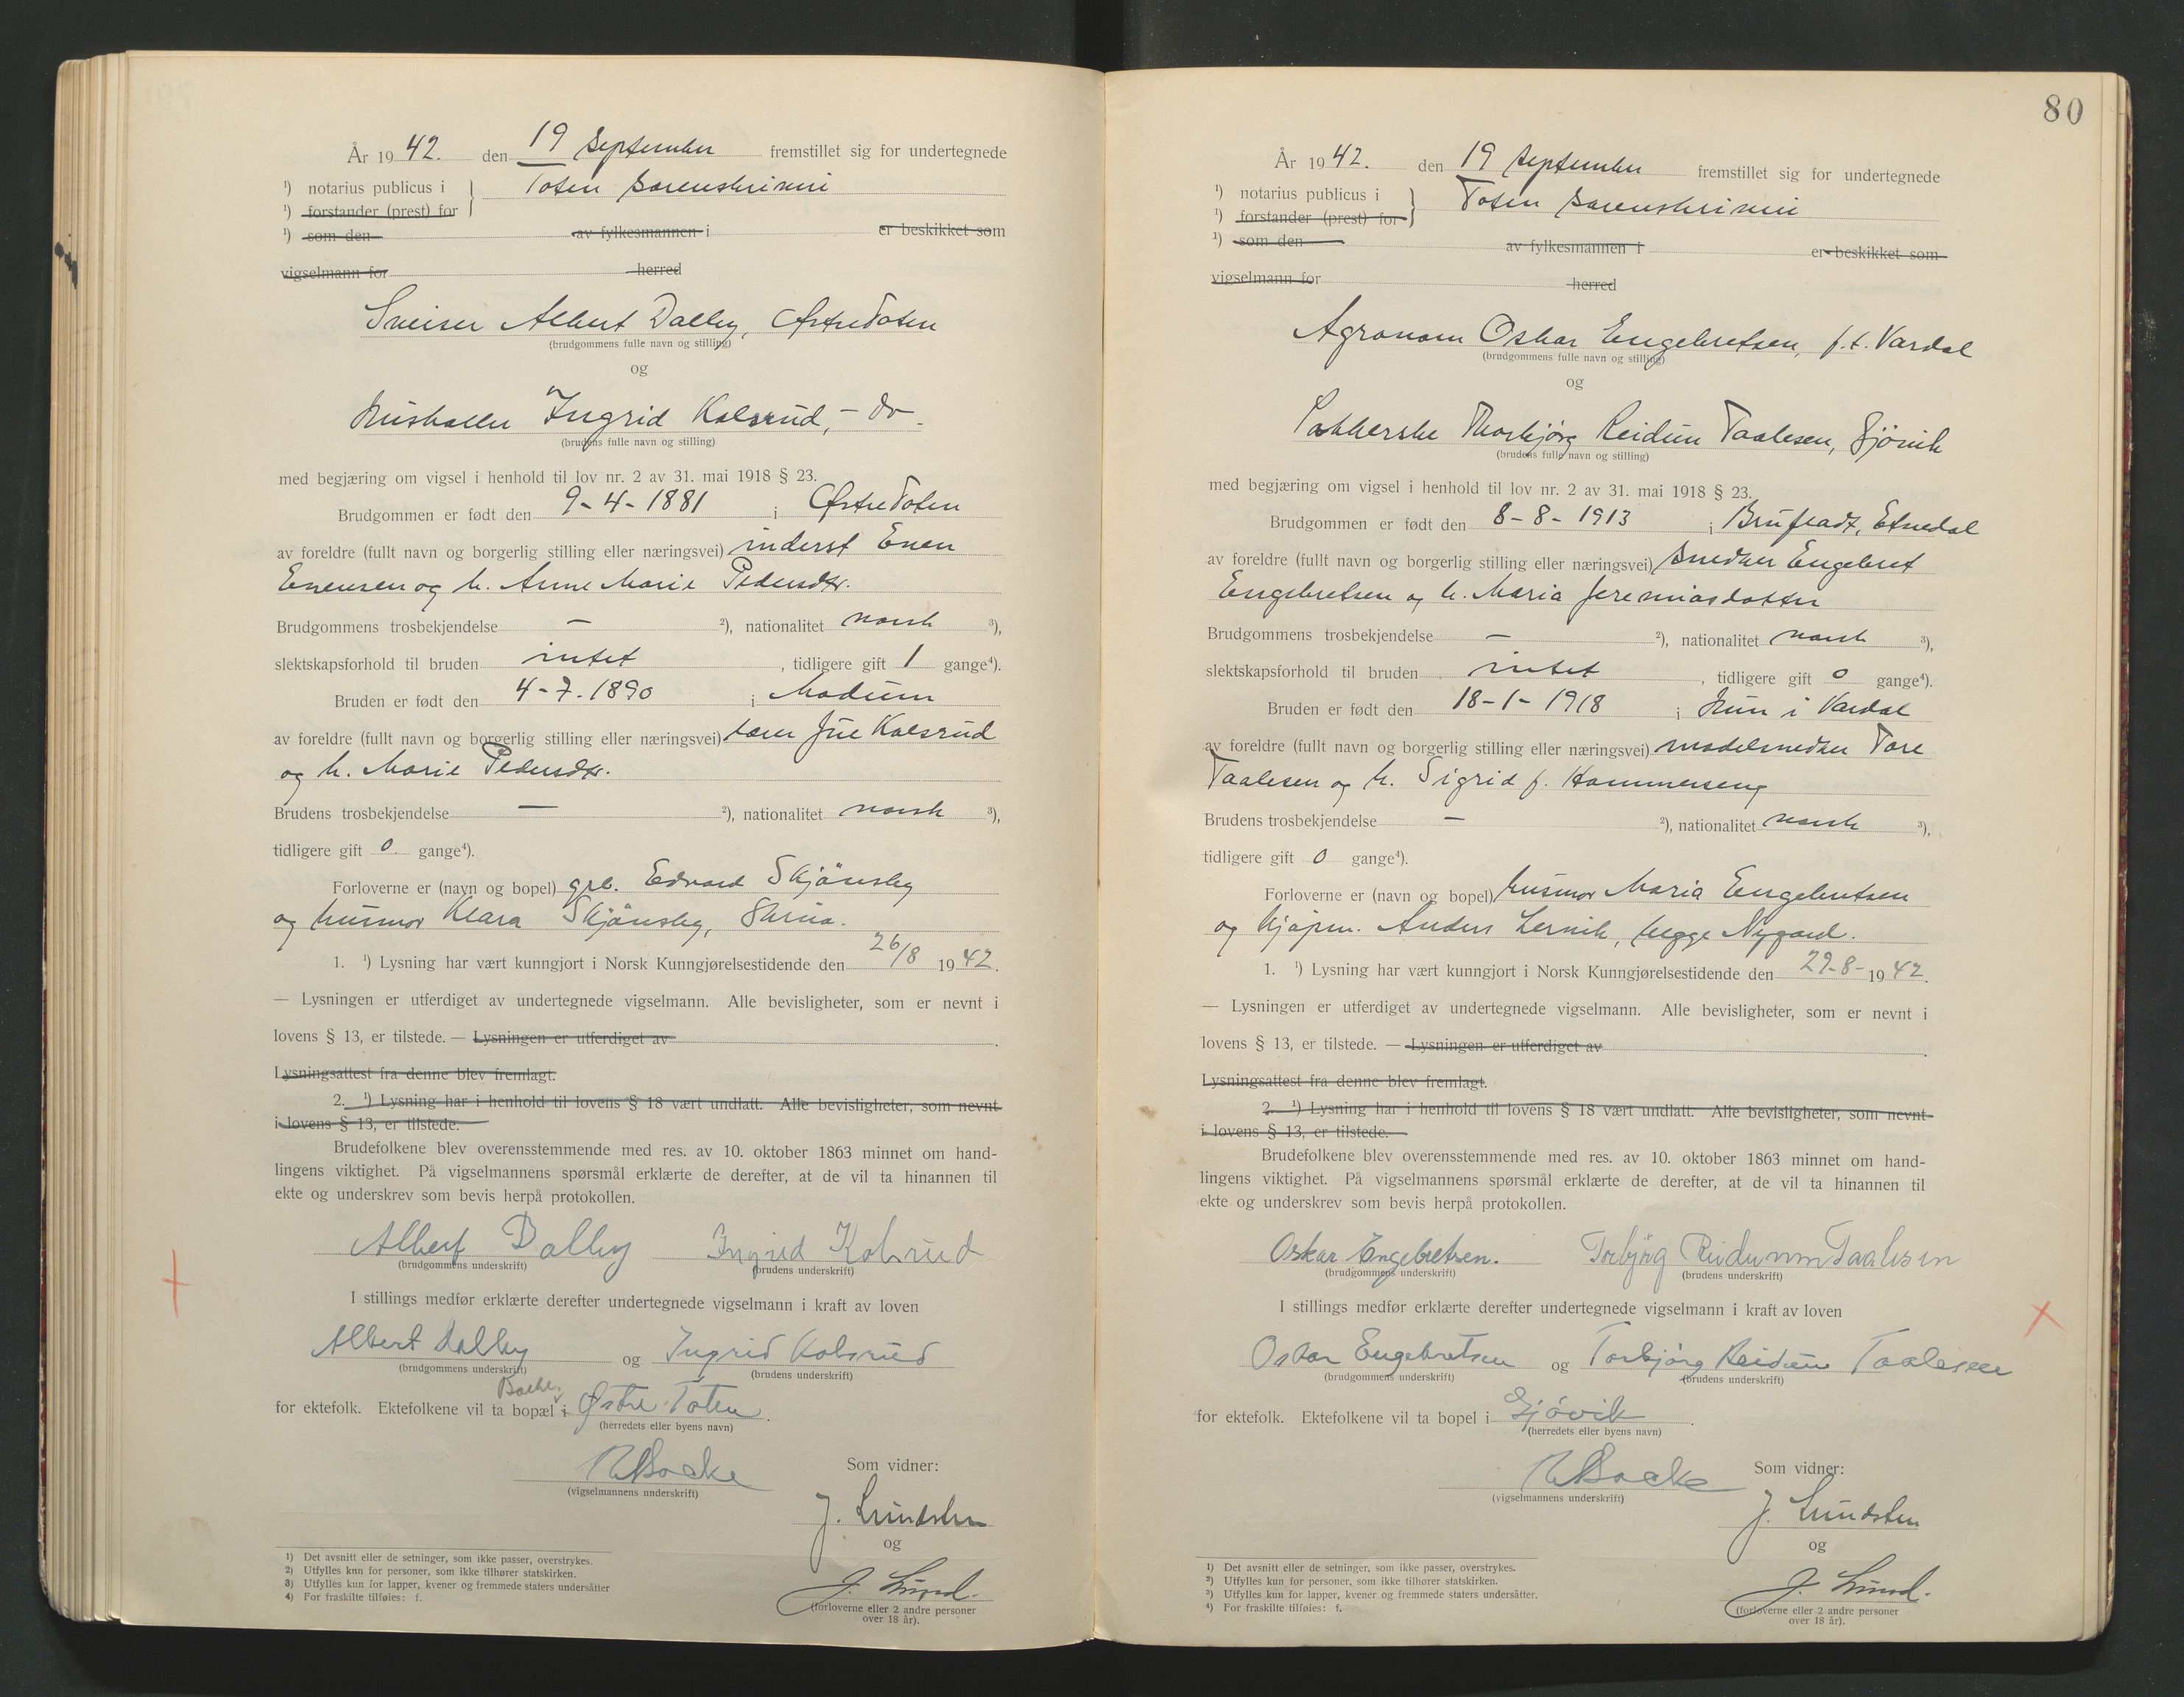 År 1942. den 19 September fremstillet sig for undertegnede
¹) notarius publicus i } Toten Sorenskriveri
¹) forstander (prest) for
¹) som den av fylkesmannen i er beskikket som
vigselmann for herred
Sveiser Albert Dalby, Østre Toten
(brudgommens fulle navn og stilling)
og
Husholder Ingrid Kolsrud, - do -
(brudens fulle navn og stilling)
med begjæring om vigsel i henhold til lov nr. 2 av 31. mai 1918 § 23.
Brudgommen er født den 9-4-1881 i Østre Toten
av foreldre (fullt navn og borgerlig stilling eller næringsvei) inderst Even
Evensen og h. Anne Marie Pedersdtr.
Brudgommens trosbekjendelse — ²), nationalitet norsk ³),
slektskapsforhold til bruden intet, tidligere gift 1 gange⁴).
Bruden er født den 4-7-1890 i Modum
av foreldre (fullt navn og borgerlig stilling eller næringsvei) lærer Kolsrud
og h. Marie Pedersdtr.
Brudens trosbekjendelse — ²), nationalitet norsk ³),
tidligere gift 0 gange⁴).
Forloverne er (navn og bopel) Edvard Skjønsby
og husmor Klara Skjønsby, Skreia.
1. ¹) Lysning har vært kunngjort i Norsk Kunngjørelsestidende den 26/8 1942.
— Lysningen er utferdiget av undertegnede vigselmann. Alle bevisligheter, som er nevnt i
lovens § 13, er tilstede. — Lysningen er utferdiget av
Lysningsattest fra denne blev fremlagt.
2. ¹) Lysning har i henhold til lovens § 18 vært undlatt. Alle bevisligheter, som nevnt
i lovens § 13, er tilstede.
Brudefolkene blev overensstemmende med res. av 10. oktober 1863 minnet om hand-
lingens viktighet. På vigselmannens spørsmål erklærte de derefter, at de vil ta hinannen til
ekte og underskrev som bevis herpå protokollen.
Albert Dalby Ingrid Kolsrud
(brudgommens underskrift) (brudens underskrift)
I stillings medfør erklærte derefter undertegnede vigselmann i kraft av loven
Albert Dalby og Ingrid Kolsrud
(brudgommens underskrift) (brudens underskrift)
for ektefolk. Ektefolkene vil ta bopæl i Østre Toten.
(herredets eller byens navn)
(vigselmannens underskrift)
Som vidner:
J. Lundsten
og
J. Lund.
(forloverne eller 2 andre personer
over 18 år).
1) Det avsnitt eller de setninger, som ikke passer, overstrykes.
2) Utfylles kun for personer, som ikke tilhører statskirken.
3) Utfylles kun for lapper, kvener og fremmede staters undersåtter
4) For fraskilte tilføies: f.
80
År 1942. den 19 September fremstillet sig for undertegnede
¹) notarius publicus i } Toten Sorenskriveri
¹) forstander (prest) for
¹) som den av fylkesmannen i er beskikket som
vigselmann for herred
Agronom Oskar Engebretsen, f.t. Vardal
(brudgommens fulle navn og stilling)
og
Pakkerske Thorbjørg Reidun Taalesen, Gjövik
(brudens fulle navn og stilling)
med begjæring om vigsel i henhold til lov nr. 2 av 31. mai 1918 § 23.
Brudgommen er født den 8-8-1913 i Brufladt, Etnedal
av foreldre (fullt navn og borgerlig stilling eller næringsvei) snedker Engebret
Engebretsen og h. Maria Jeremiasdotter
Brudgommens trosbekjendelse — ²), nationalitet norsk ³),
slektskapsforhold til bruden intet, tidligere gift 0 gange⁴).
Bruden er født den 18-1-1918 i Hun i Vardal
av foreldre (fullt navn og borgerlig stilling eller næringsvei) modelsnedker Tore
Taalesen og h. Sigrid f. Hammerseng
Brudens trosbekjendelse — ²), nationalitet norsk ³),
tidligere gift 0 gange⁴).
Forloverne er (navn og bopel) husmor Maria Engebretsen
og kjøpm. Anders Lervik, begge Nygard.
1. ¹) Lysning har vært kunngjort i Norsk Kunngjørelsestidende den 29-8-1942.
— Lysningen er utferdiget av undertegnede vigselmann. Alle bevisligheter, som er nevnt i
lovens § 13, er tilstede. — Lysningen er utferdiget av
Lysningsattest fra denne blev fremlagt.
2. ¹) Lysning har i henhold til lovens § 18 vært undlatt. Alle bevisligheter, som nevnt
i lovens § 13, er tilstede.
Brudefolkene blev overensstemmende med res. av 10. oktober 1863 minnet om hand-
lingens viktighet. På vigselmannens spørsmål erklærte de derefter, at de vil ta hinannen til
ekte og underskrev som bevis herpå protokollen.
Oskar Engebretsen. Torbjörg Reidunn Taalesen
(brudgommens underskrift) (brudens underskrift)
I stillings medfør erklærte derefter undertegnede vigselmann i kraft av loven
Oskar Engebretsen og Torbjörg Reidun Taalesen
(brudgommens underskrift) (brudens underskrift)
for ektefolk. Ektefolkene vil ta bopel i Gjövik.
(herredets eller byens navn)
(vigselmannens underskrift)
Som vidner:
J. Lundsten
og
J. Lund.
(forloverne eller 2 andre personer
over 18 år).
1) Det avsnitt eller de setninger, som ikke passer, overstrykes.
2) Utfylles kun for personer, som ikke tilhører statskirken.
3) Utfylles kun for lapper, kvener og fremmede staters undersåtter.
4) For fraskilte tilføies: f.